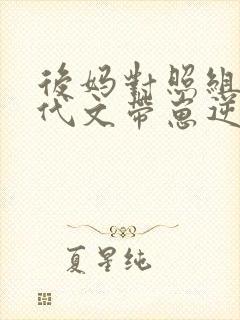 後妈對照組
代文帶崽逆
夏星纯